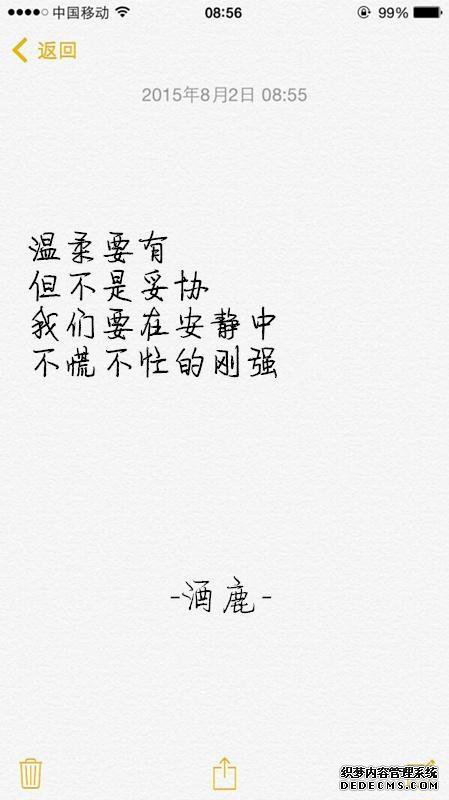 中国移动 08:56 99%
返回
2015年8月2日 08:55
温柔要有
但不是妥协
我们要在安静中
不慌不忙的刚强
-酒鹿-
织梦内容管理系统
DEDECMS.COM